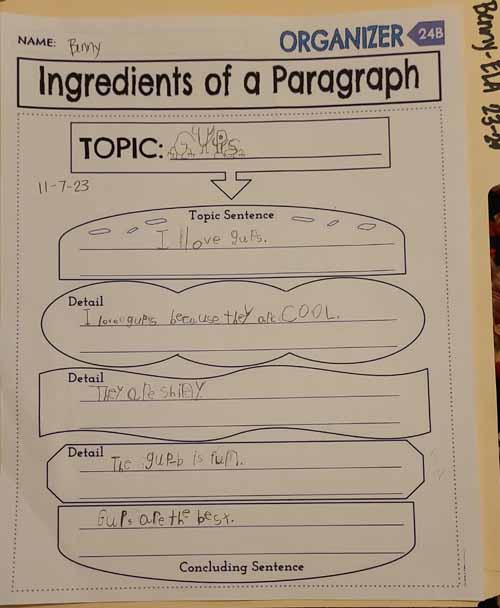 NAME: Benny
ORGANIZER 24B
Ingredients of a Paragraph
TOPIC: GUPs
11-7-23
Topic Sentence
I love gups.
Detail
I love gups because they are COOL.
Detail
They are shiny
Detail
The gup-b is fun.
Gups are the best.
Concluding Sentence
Benny-ELA 23-2